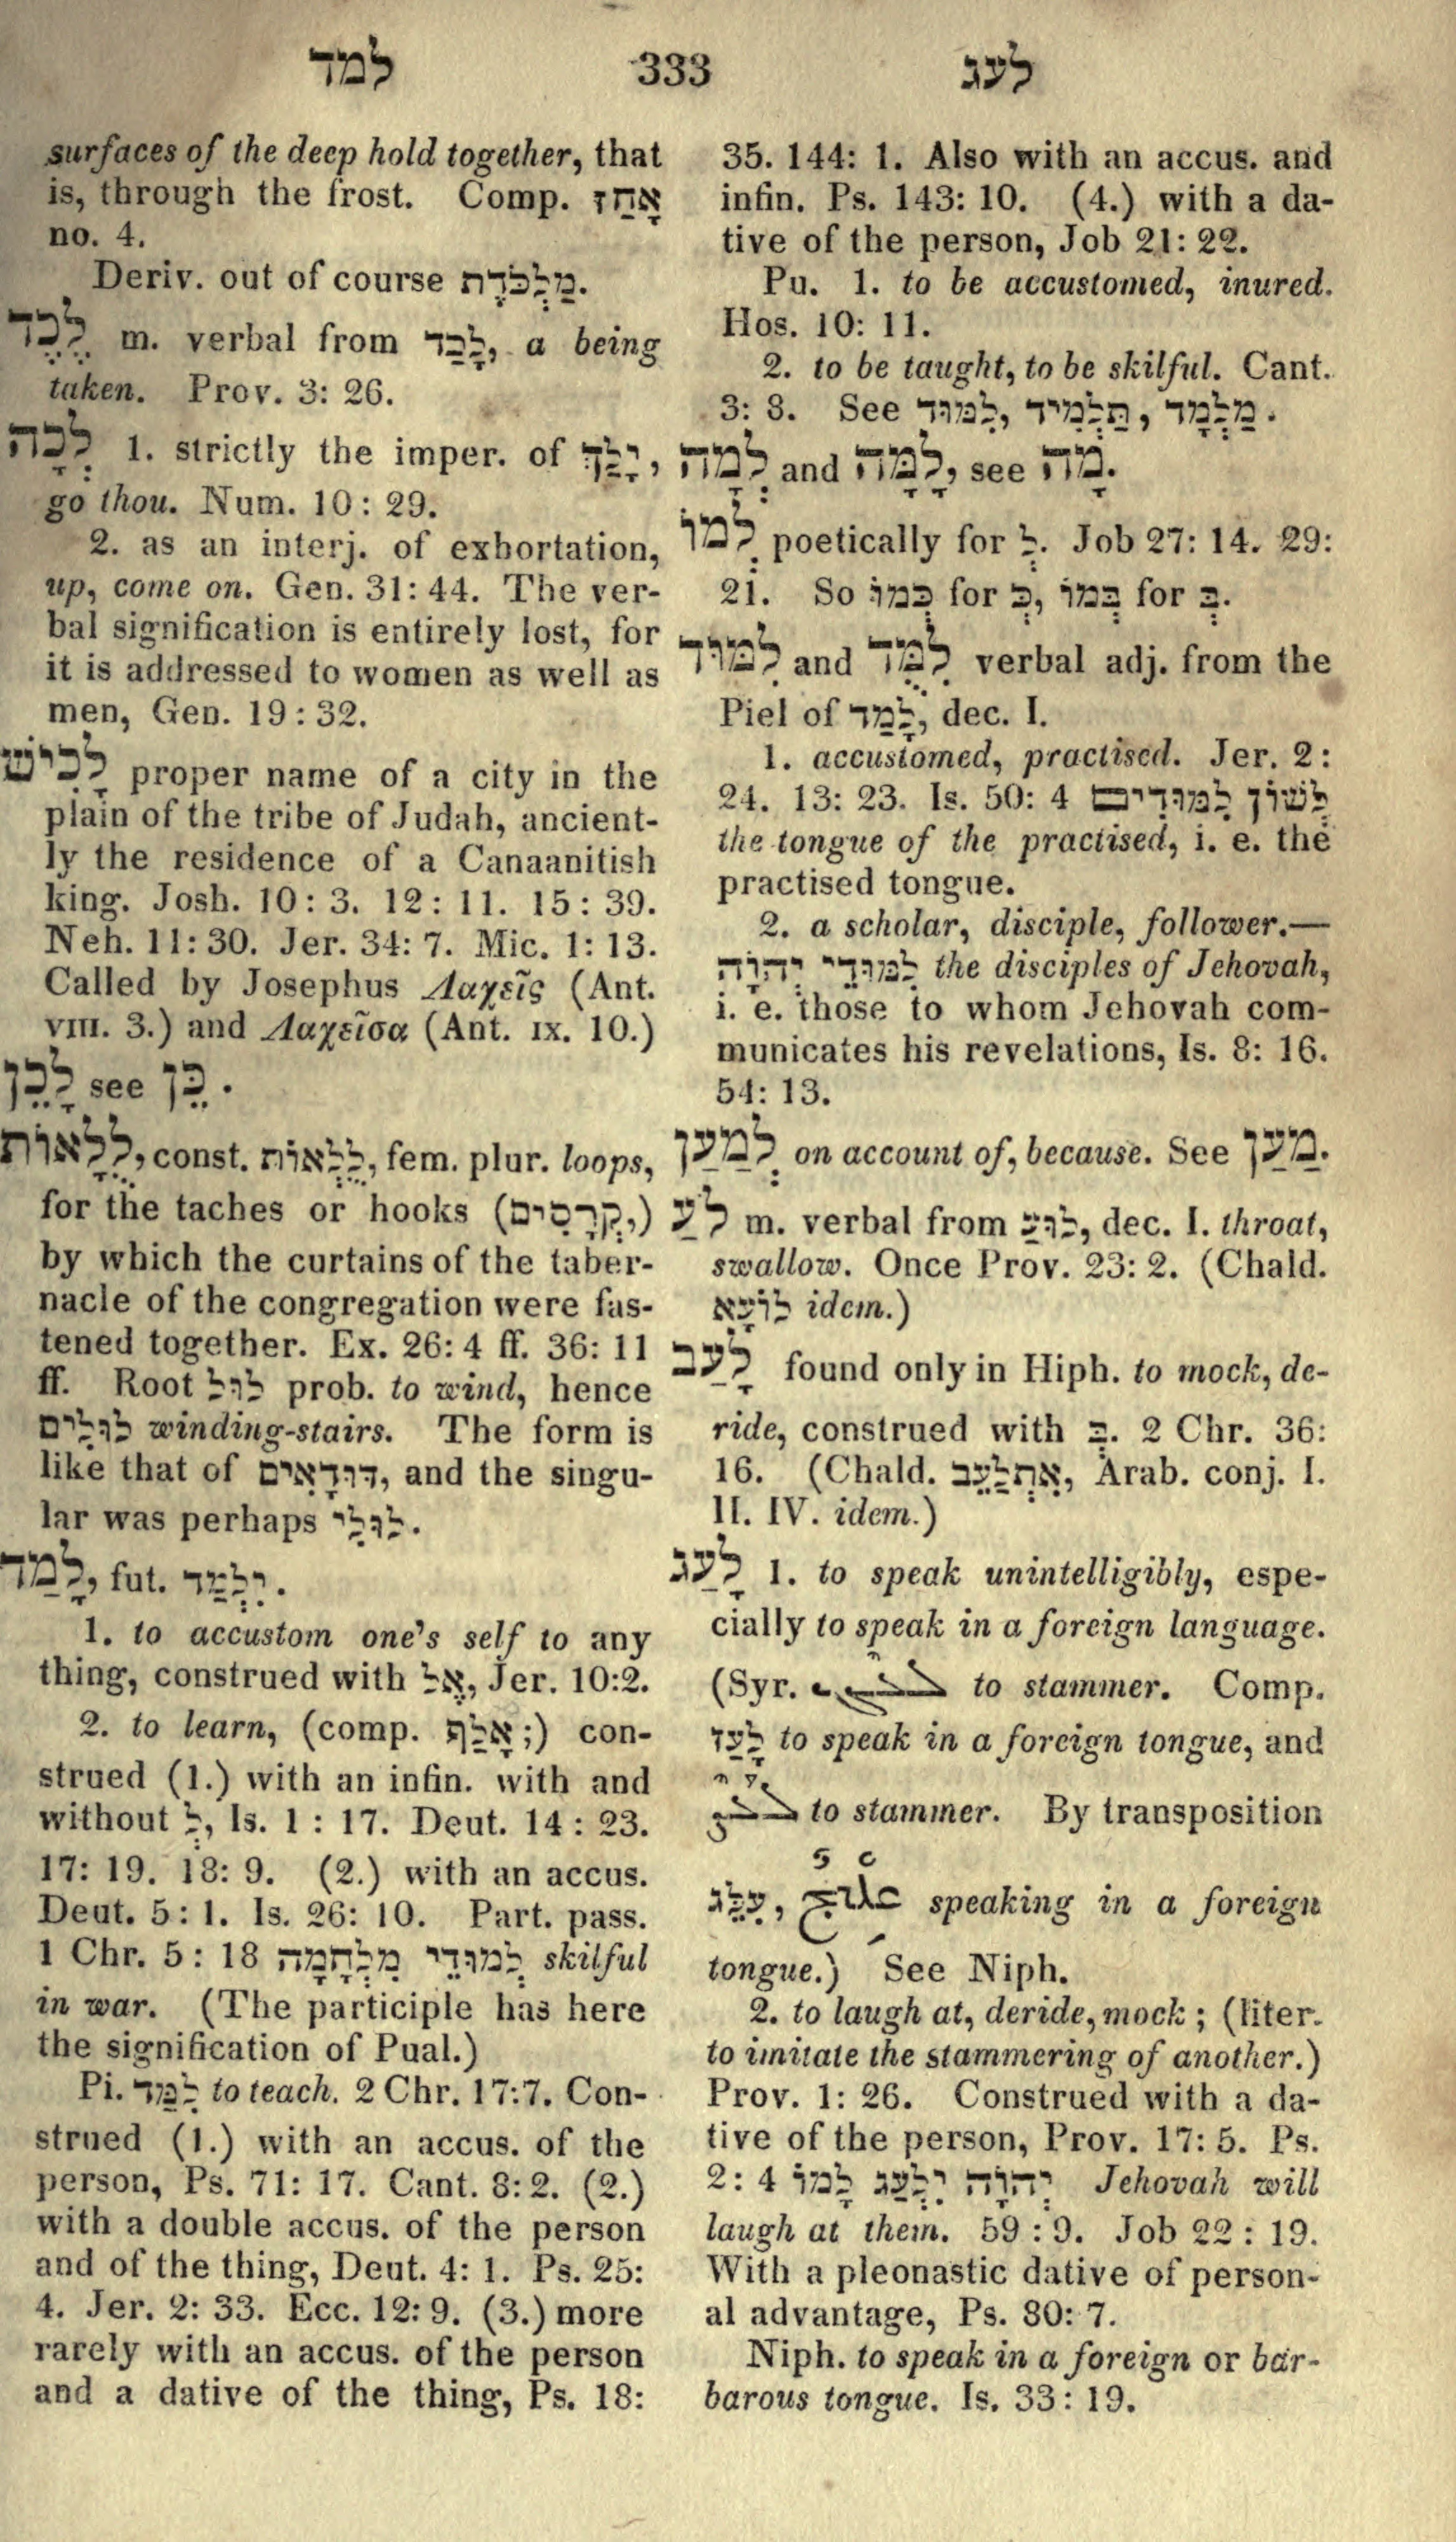 למד 333 לעג
surfaces of the deep hold together, that
is, through the frost. Comp. אָחַז
no. 4.
Deriv. out of course מַלְכֹּדֶת.
לֶכֶד m. verbal from לָכַד, a being
taken. Prov. 3: 26.
לְכָה 1. strictly the imper. of יָלַךְ,
go thou. Num. 10: 29.
2. as an interj. of exhortation,
up, come on. Gen. 31: 44. The ver-
bal signification is entirely lost, for
it is addressed to women as well as
men, Gen. 19: 32.
לָכִישׁ proper name of a city in the
plain of the tribe of Judah, ancient-
ly the residence of a Canaanitish
king. Josh. 10: 3. 12: 11. 15: 39.
Neh. 11: 30. Jer. 34: 7. Mic. 1: 13.
Called by Josephus Λαχεῖς (Ant.
VIII. 3.) and Λαχεῖσα (Ant. IX. 10.)
לָכֵן see כֵּן.
לֻלָאוֹת, const. לֻלְאוֹת, fem. plur. loops,
for the taches or hooks (קְרָסִים,)
by which the curtains of the taber-
nacle of the congregation were fas-
tened together. Ex. 26: 4 ff. 36: 11
ff. Root לול prob. to wind, hence
לוּלִים winding-stairs. The form is
like that of דּוּדָאִים, and the singu-
lar was perhaps לוּלַי.
לָמַד, fut. יִלְמַד.
1. to accustom one's self to any
thing, construed with אֶל, Jer. 10:2.
2. to learn, (comp. אָלַף;) con-
strued (1.) with an infin. with and
without לְ, Is. 1: 17. Deut. 14: 23.
17: 19. 18: 9. (2.) with an accus.
Deut. 5: 1. Is. 26: 10. Part. pass.
1 Chr. 5: 18 לְמוּדֵי מִלְחָמָה skilful
in war. (The participle has here
the signification of Pual.)
Pi. לִמַּד to teach. 2 Chr. 17:7. Con-
strued (1.) with an accus. of the
person, Ps. 71: 17. Cant. 8: 2. (2.)
with a double accus. of the person
and of the thing, Deut. 4: 1. Ps. 25:
4. Jer. 2: 33. Ecc. 12: 9. (3.) more
rarely with an accus. of the person
and a dative of the thing, Ps. 18:
35. 144: 1. Also with an accus. and
infin. Ps. 143: 10. (4.) with a da-
tive of the person, Job 21: 22.
Pu. 1. to be accustomed, inured.
Hos. 10: 11.
2. to be taught, to be skilful. Cant.
3: 8. See לִמּוּד, תַּלְמִיד, מַלְמָד.
לְמָה and לָמָּה, see מָה.
לְמוֹ poetically for לְ. Job 27: 14. 29:
21. So כְּמוֹ for כְּ, בְּמוֹ for בְּ.
לִמּוּד and לִמֻּד verbal adj. from the
Piel of לָמַד, dec. I.
1. accustomed, practised. Jer. 2:
24. 13: 23. Is. 50: 4 לְשׁוֹן לִמּוּדִים
the tongue of the practised, i. e. the
practised tongue.
2. a scholar, disciple, follower.—
לִמּוּדֵי יְהוָֹה the disciples of Jehovah,
i. e. those to whom Jehovah com-
municates his revelations, Is. 8: 16.
54: 13.
לְמַעַן on account of, because. See מַעַן.
לֹעַ m. verbal from לוּעַ, dec. I. throat,
swallow. Once Prov. 23: 2. (Chald.
לוֹעָא idem.)
לָעַב found only in Hiph. to mock, de-
ride, construed with בְּ. 2 Chr. 36:
16. (Chald. אִתְלַעֵב, Arab. conj. I.
II. IV. idem.)
לָעַג 1. to speak unintelligibly, espe-
cially to speak in a foreign language.
(Syr. to stammer. Comp.
לָעַז to speak in a foreign tongue, and
to stammer. By transposition
עִלֵּג, speaking in a foreign
tongue.) See Niph.
2. to laugh at, deride, mock; (liter.
to imitate the stammering of another.)
Prov. 1: 26. Construed with a da-
tive of the person, Prov. 17: 5. Ps.
2: 4 יְהוָֹה יִלְעַג לָמוֹ Jehovah will
laugh at them. 59: 9. Job 22: 19.
With a pleonastic dative of person-
al advantage, Ps. 80: 7.
Niph. to speak in a foreign or bar-
barous tongue. Is. 33: 19.